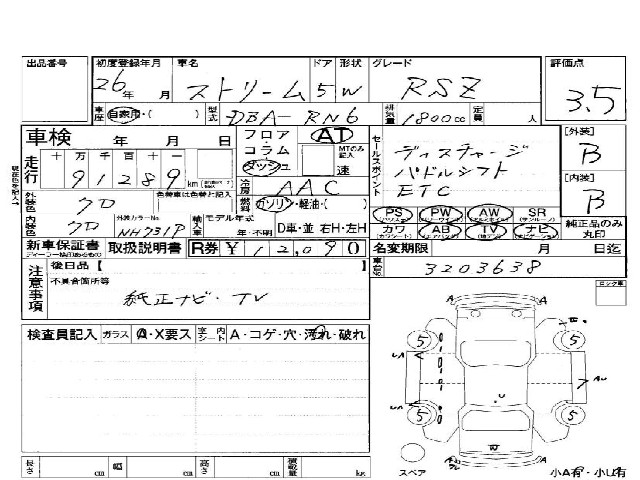 出品番号 初度登録年月 車名 ドア 形状 グレード 評価点
26年 月 ストリーム 5 W RSZ 3.5
車歴 自家用・( ) 型式 DBA-RN6 排気量 1800cc 定員 人
車検 年 月 日 フロア・コラム・ダッシュ AT MTのみ記入 速 セールスポイント ディスチャージ [外装] B
走行 十 万 千 百 十 一 パドルシフト
91289 km 冷房 AAC ETC [内装] B
外装色 クロ 色替車は色替前と記入 燃料 ガソリン・軽油・( ) PS PW AW SR
内装色 クロ 外装カラーNo. NH731P 輸入車 モデル年式 年・不明 D車・並 右H・左H カワ AB TV ナビ 純正品のみ丸印
新車保証書 取扱説明書 R券 ¥12,090 名変期限 月 日迄
注意事項 後日品【 】 車台No. 3203638
不具合箇所等
純正ナビ・TV
検査員記入 ガラス A・X要ス 室内シート A・コゲ・穴・汚れ・破れ
5 5
UA AU
5 5
A A
スペア
長さ cm 幅 cm 高さ cm 積載量 kg 小A有・小U有